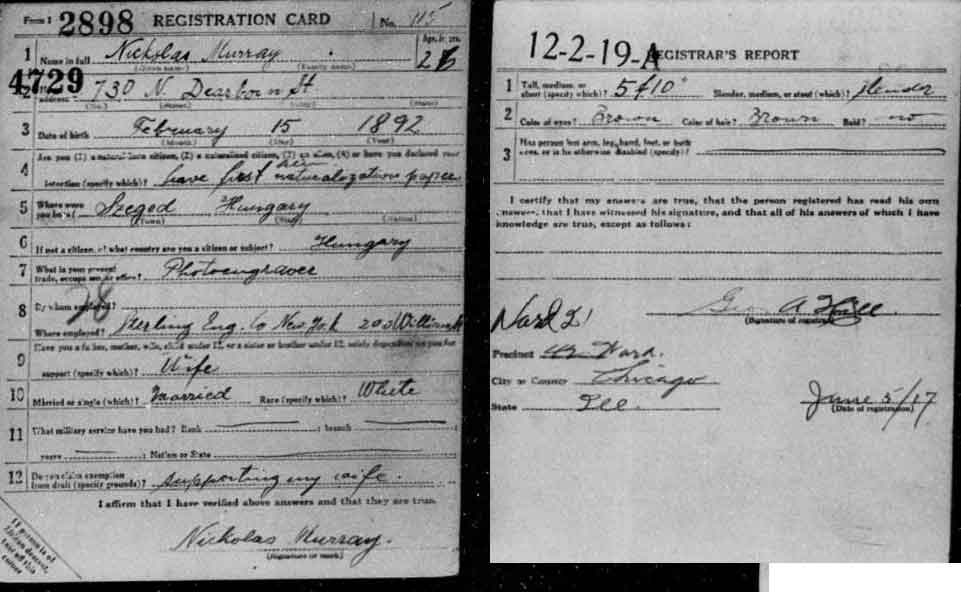 Form 1 2898 REGISTRATION CARD No. 115
Age, in yrs.
1 Name in full Nickholas Murray 25
(Given name) (Family name)
4729
2 Home address 730 N. Dearborn St
(No.) (Street) (City) (State)
3 Date of birth February 15 1892
(Month) (Day) (Year)
4 Are you (1) a natural-born citizen, (2) a naturalized citizen, (3) an alien, (4) or have you declared your
intention (specify which)? have first naturalization paper
5 Where were you born? Szeged Hungary
(Town) (State) (Nation)
6 If not a citizen, of what country are you a citizen or subject? Hungary
7 What is your present trade, occupation, or office? Photoengraver
8 By whom employed?
28
Where employed? Sterling Eng. Co New York 200 William
9 Have you a father, mother, wife, child under 12, or a sister or brother under 12, solely dependent on you for
support (specify which)? Wife
10 Married or single (which)? Married Race (specify which)? White
11 What military service have you had? Rank ; branch ;
years ; Nation or State
12 Do you claim exemption from draft (specify grounds)? supporting my wife.
I affirm that I have verified above answers and that they are true.
Nickholas Murray.
(Signature or mark)
If person is of African descent, tear off this corner
12-2-19-A REGISTRAR'S REPORT
1 Tall, medium, or short (specify which)? 5f10" Slender, medium, or stout (which)? slender
2 Color of eyes? Brown Color of hair? Brown Bald? no
3 Has person lost arm, leg, hand, foot, or both
eyes, or is he otherwise disabled (specify)?
I certify that my answers are true, that the person registered has read his own
answers, that I have witnessed his signature, and that all of his answers of which I have
knowledge are true, except as follows:
Geo A Hall
(Signature of registrar)
Ward 21
Precinct 42 Ward.
City or County Chicago
State Ill.
June 5/17
(Date of registration)